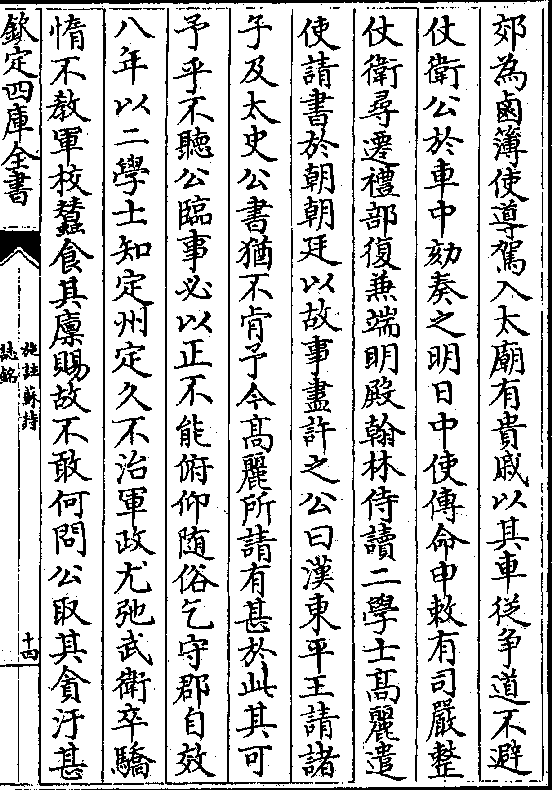 郊為鹵簿使導駕入太廟有貴戚以其車從争道不避
仗衛公於車中劾奏之明日中使傳命申敕有司嚴整
仗衛尋遷禮部復兼端明殿翰林侍讀二學士髙麗遣
使請書於朝朝廷以故事盡許之公曰漢東平王請諸
子及太史公書猶不肯予今髙麗所請有甚於此其可
予乎不聽公臨事必以正不能俯仰随俗乞守郡自效
八年以二學士知定州定久不治軍政尤弛武衛卒驕
惰不教軍校蠶食其廩賜故不敢何問公取其貪汙甚
欽定四庫全書
施註蘇詩
誌銘
十四